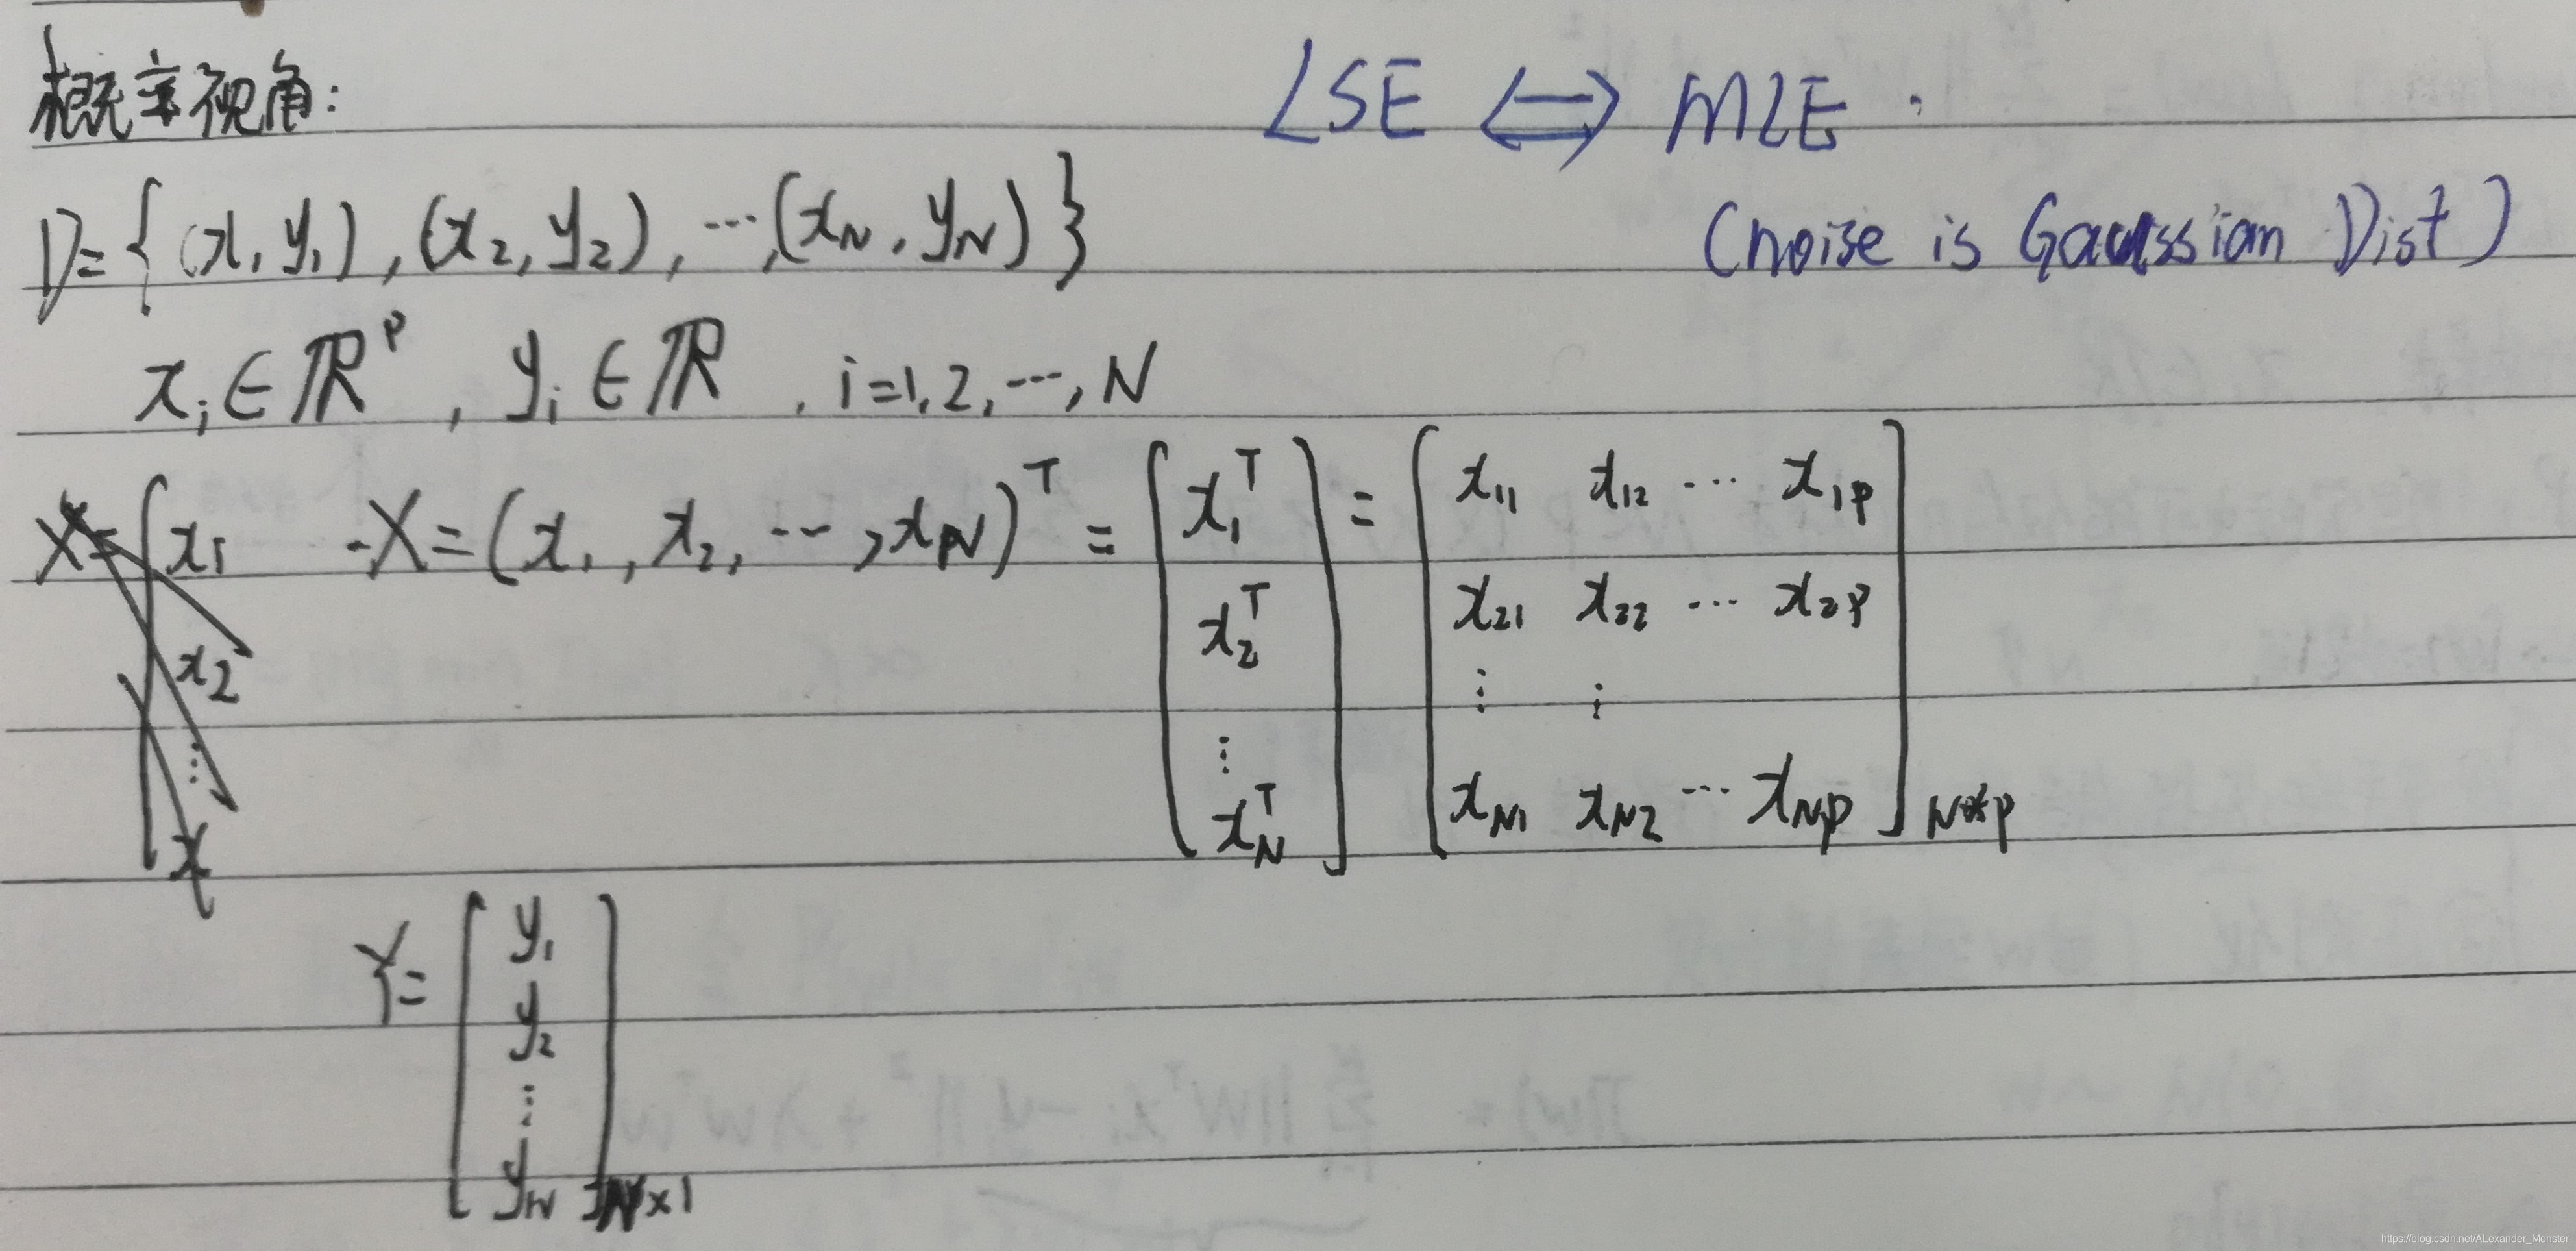 概率视角: LSE ⟺ MLE.
D={(x₁,y₁),(x₂,y₂),⋯,(x_N,y_N)} (noise is Gaussian Dist)
x_i∈ℝ^p, y_i∈ℝ, i=1,2,⋯,N
X=(x₁,x₂,⋯,x_N)^T = [x₁^T = [x₁₁ x₁₂ ⋯ x₁p
x₂^T x₂₁ x₂₂ ⋯ x₂p
⋮ ⋮ ⋮
x_N^T] x_N1 x_N2 ⋯ x_Np]_N×p
Y=[y₁
y₂
⋮
y_N]_N×1
https://blog.csdn.net/ALexander_Monster